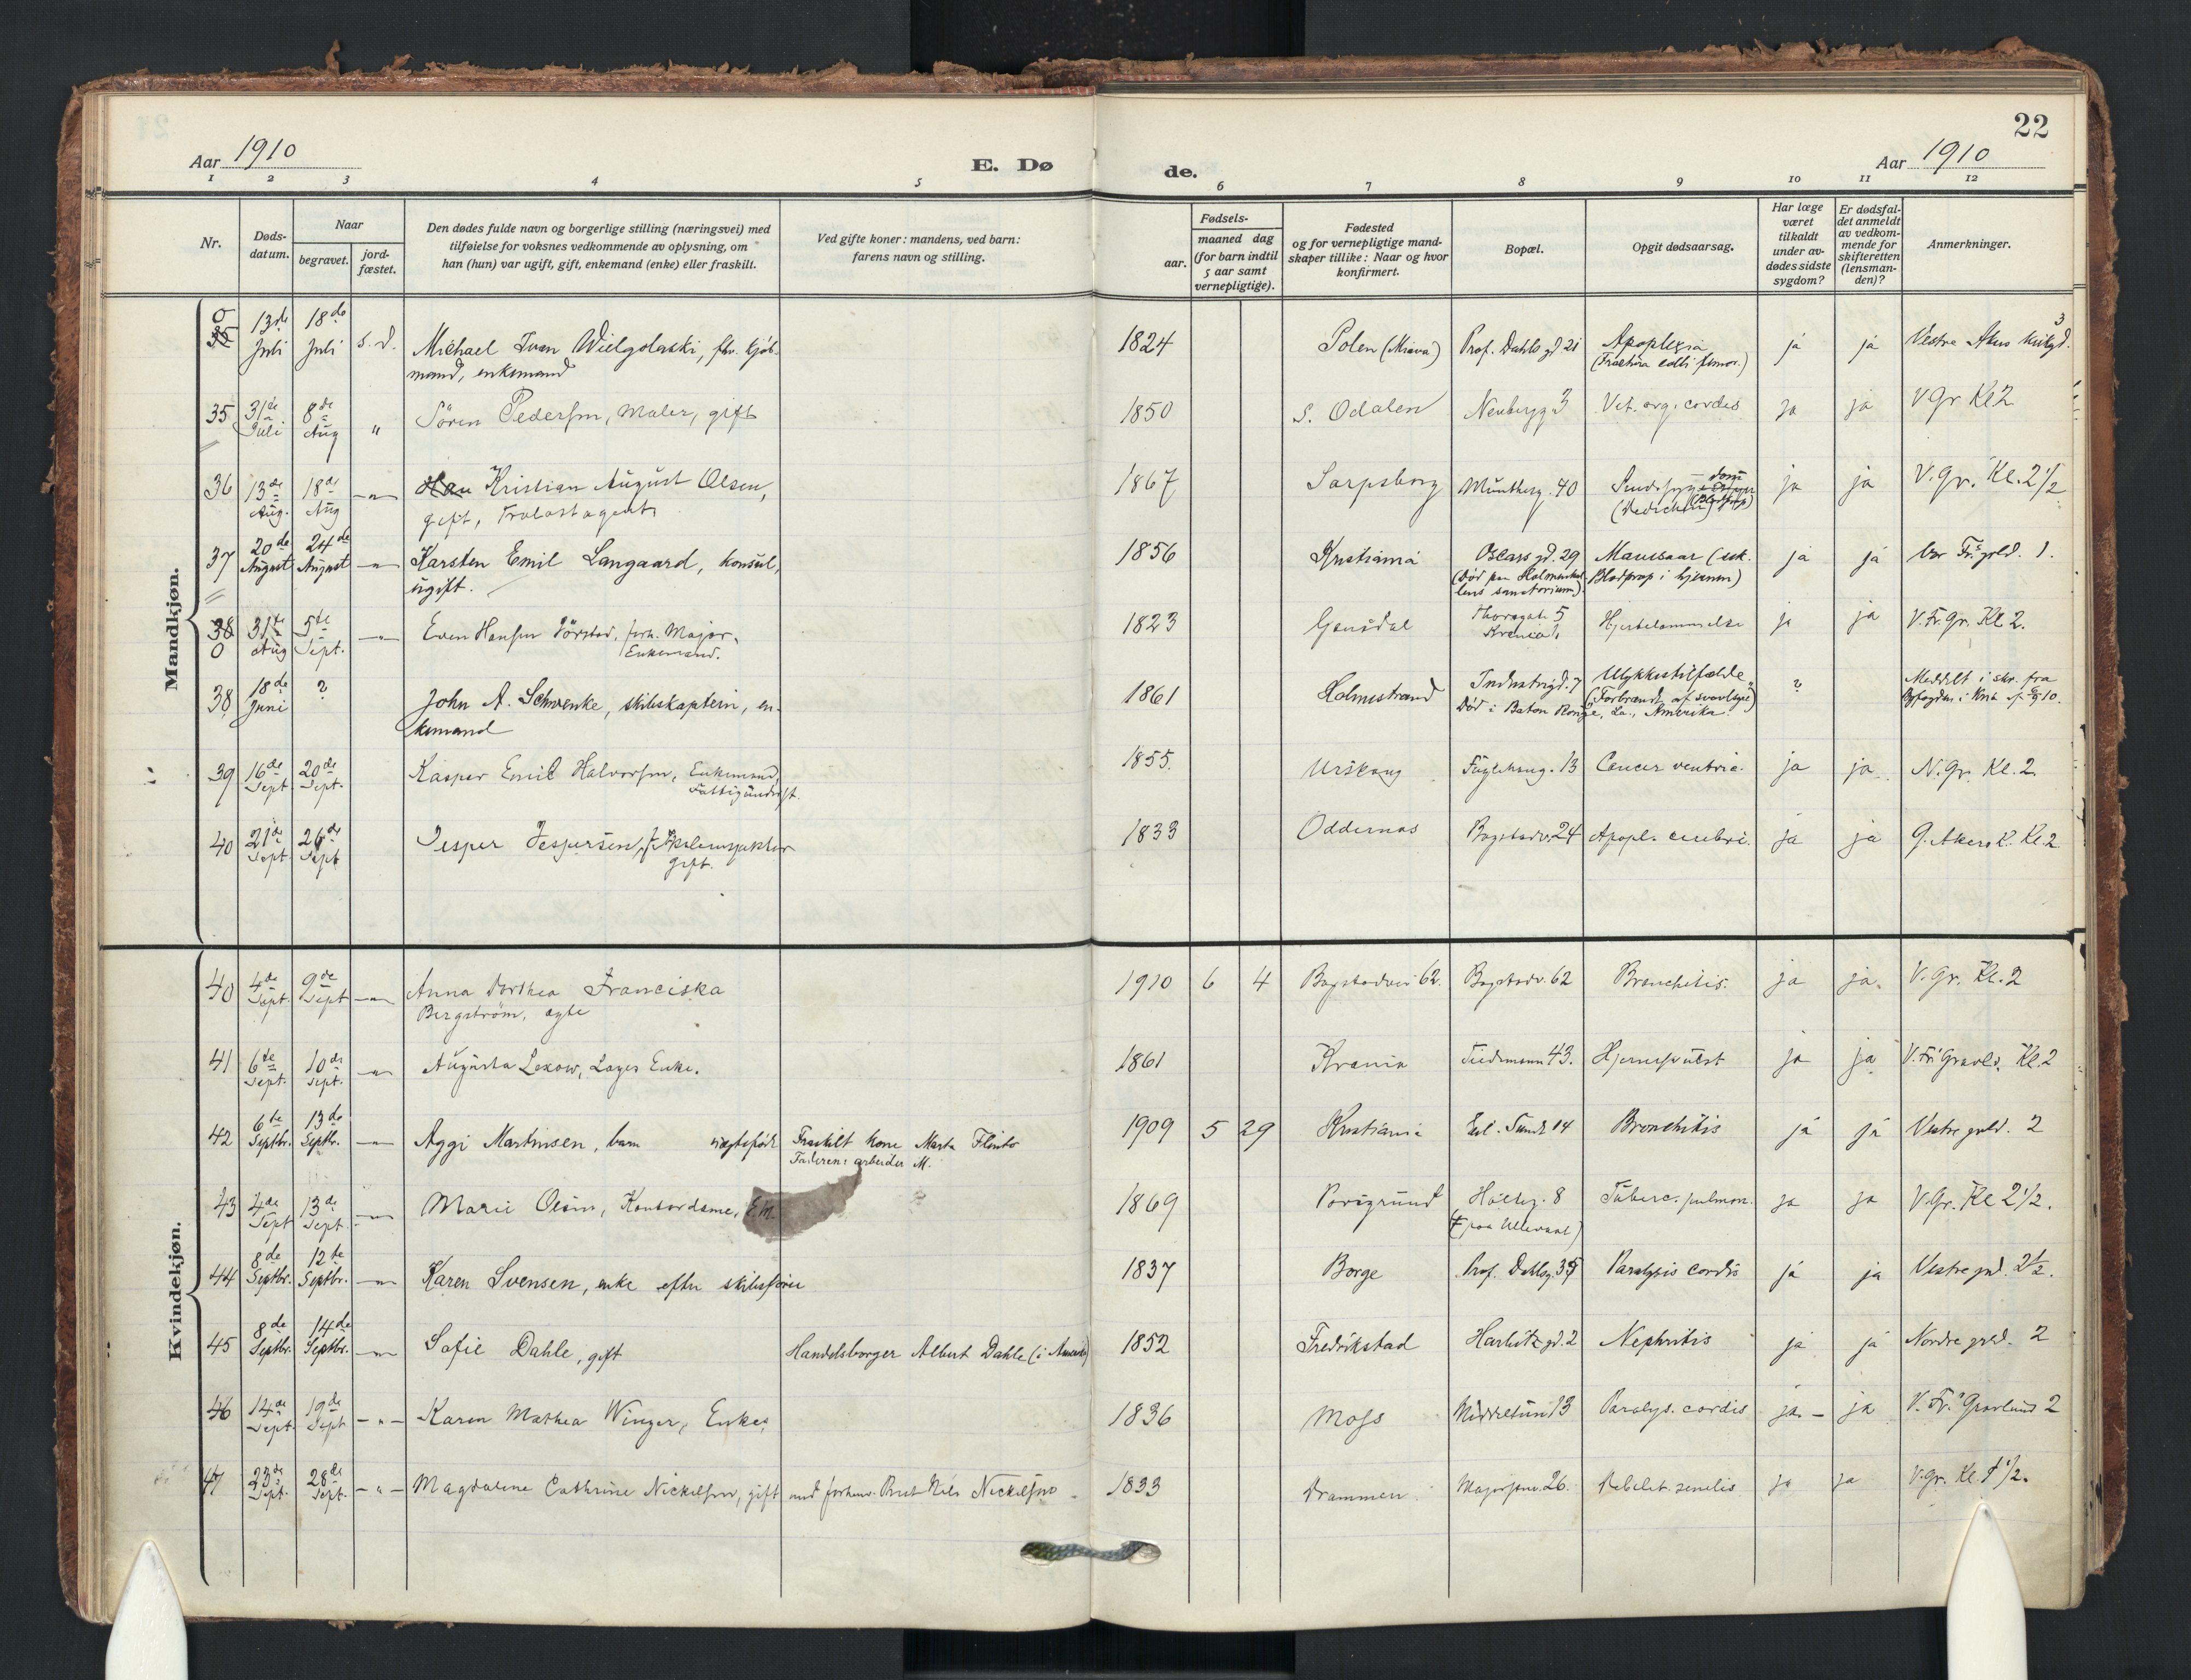 22
Aar 1910
E. Dø
de.
Aar 1910
1 2 3 4 5 6 7 8 9 10 11 12
Nr.
Døds-
datum.
Naar
begravet.
jord-
fæstet.
Den dødes fulde navn og borgerlige stilling (næringsvei) med
tilføielse for voksnes vedkommende av oplysning, om
han (hun) var ugift, gift, enkemand (enke) eller fraskilt.
Ved gifte koner: mandens, ved barn:
farens navn og stilling.
Fødsels-
aar.
maaned dag
(for barn indtil
5 aar samt
vernepligtige).
Fødested
og for vernepligtige mand-
skaper tillike: Naar og hvor
konfirmert.
Bopæl.
Opgit dødsaarsag.
Har læge
været
tilkaldt
under av-
dødes sidste
sygdom?
Er dødsfal-
det anmeldt
av vedkom-
mende for
skifteretten
(lensman-
den)?
Anmerkninger.
Mandkjøn.
0 35 13de Juli 18de Juli s. d. Michael Ivan Wielgolaski, fhv. kjøb-
mand, enkemand 1824 Polen (Mrava) Prof. Dahls gd 21 Apoplexia
(Fractura colli femor.) ja ja Vestre Akers kirkgd. 3
35 31te Juli 8de Aug " Sören Pedersen, Maler, gift 1850 S. Odalen Neubergg 3 Vit. org. cordis ja ja V Gr Kl 2
36 13de Aug. 18de Aug -"- Kristian August Olsen,
gift, Trælastagent 1867 Sarpsborg Munthesg. 40 ja ja V. Gr. Kl. 2 1/2
37 20de August 24de August -"- Karsten Emil Langaard, konsul,
ugift. 1856 Kristiania Oscars gd. 29
(Død paa Holmenkol-
lens sanatorium) (sek.
Blodprop i hjernen) ja ja Vor Fr.s grld. 1.
38 0 31te Aug 5te Sept. -"- Even Hansen Tørstad, forh. Major,
Enkemand. 1823 Gausdal Thorsgate 5
Krania Hjertelammelse ja ja V. Fr. Gr. Kl 2.
38, 18de Juni ? John A. Schwenke, skibskaptein, en-
kemand 1861 Holmestrand Industrigd. 7
Død i Baton Rouge, La., Amerika. Ulykkestilfælde
(Forbrændt af svovlsyre) ? Meddelt i skr. fra
Byfogden i Kria
39 16de Sept. 20de Sept. Kasper Emil Halvorsen, Enkemand,
Fattigunderst. 1855. Urskoug Fuglehaug. 13 Cancer ventric. ja ja. N. Gr. Kl. 2.
40 21de Sept. 26de Sept Jesper Jespersen, f. Skoleinspektør
Gift. 1833 Oddernes Bogstadv. 24 Apopl. cerebri. ja ja Kl. 2
Kvindekjøn.
40 4de Sept. 9de Sept -"- Anna Dorthea Franciska
Bergström, ægte 1910 6 4 Bogstadvei 62. Bogstadv. 62 Bronchitis. ja ja. V. Gr. Kl. 2
41 6te Sept. 10de Sept. -"- Augusta Lexow, Læges Enke. 1861 Krania Tidemann 43. Hjernesvulst ja ja V. Fr. Gravld. Kl. 2
42 6te Septbr. 13de Septbr. -"- Aggi Martinsen, barn uægtefødt Fraskilt kone Marta Flinto
Faderen: arbeider M. 1909 5 29 Kristiania Eil. Sundt 14 Bronchitis ja ja Vestre grld. 2
43 4de Sept 13de Sept. -"- Marie Olsen, Kontordame, E.M. 1869 Porsgrund Holteg. 8
(† paa Ullevaal) Tuberc. pulmon. ja ja V. Gr. Kl 2 1/2.
44 8de Septbr. 12te Septbr. -"- Karen Svensen, enke efter skibsfører 1837 Borge Prof. Dahlsg. 35 Paralysis cordis ja ja Vestre grd. 2 1/2.
45 8de Septbr. 14de Septbr. -"- Sofie Dahle, gift Handelsborger Albert Dahle (i Amerika) 1852 Fredrikstad Harbitz gd. 2 Nephritis ja ja Nordre grld. 2
46 14de Sept. 19de Sept -"- Karen Mathea Winger, Enke, 1836 Moss Middelthun 13 Paralys. cordis ja. - ja V. Fr. Gravlund 2
47 23de Sept. 28de Sept. -"- Magdalene Cathrine Nickelsen, gift med forhenv. Nils Nickelsen 1833 Drammen Majorstuv. 26. Debilit. senilis ja ja V. Gr. Kl. 1 1/2.